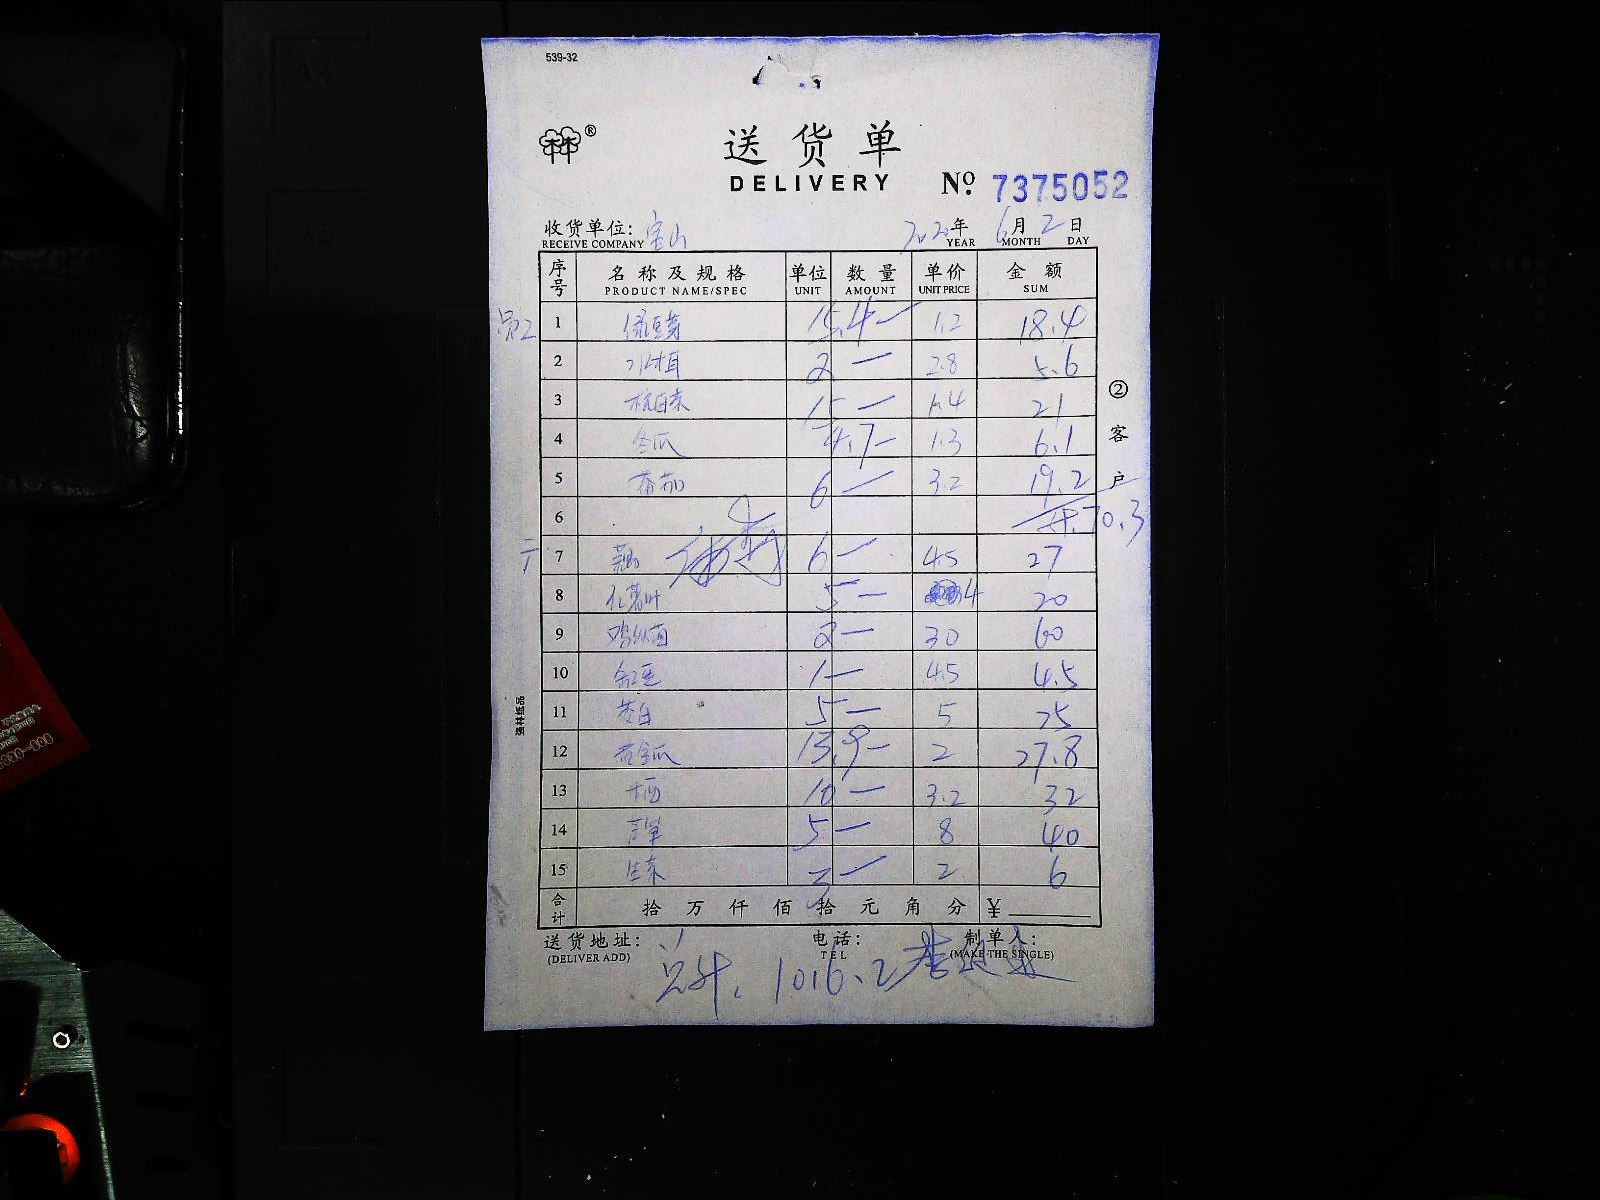 539-32
林®
送货单
DELIVERY
№ 7375052
收货单位: 宝山 2020年 6月 2日
RECEIVE COMPANY YEAR MONTH DAY
序号 名称及规格 单位 数量 单价 金额
PRODUCT NAME/SPEC UNIT AMOUNT UNIT PRICE SUM
员工 1 绿豆芽 15.4 — 1.2 18.4
2 水木耳 2 — 2.8 5.6
3 杭白菜 15 — 1.4 21
4 冬瓜 4.7 — 1.3 6.1
5 蕃茄 6 — 3.2 19.2
6 计.70.3
7 6 — 4.5 27
8 5 — 4 20
9 鸡纵菌 2 — 30 60
10 缸豆 1 — 4.5 4.5
11 茭白 5 — 5 25
12 13.9 — 2 27.8
13 10 — 3.2 32
14 5 — 8 40
15 生菜 3 — 2 6
合计 拾 万 仟 佰 拾 元 角 分 ¥
送货地址: 电话: 制单人:
(DELIVER ADD) TEL (MAKE THE SINGLE)
总计. 1016.2
② 客户
强林纸品